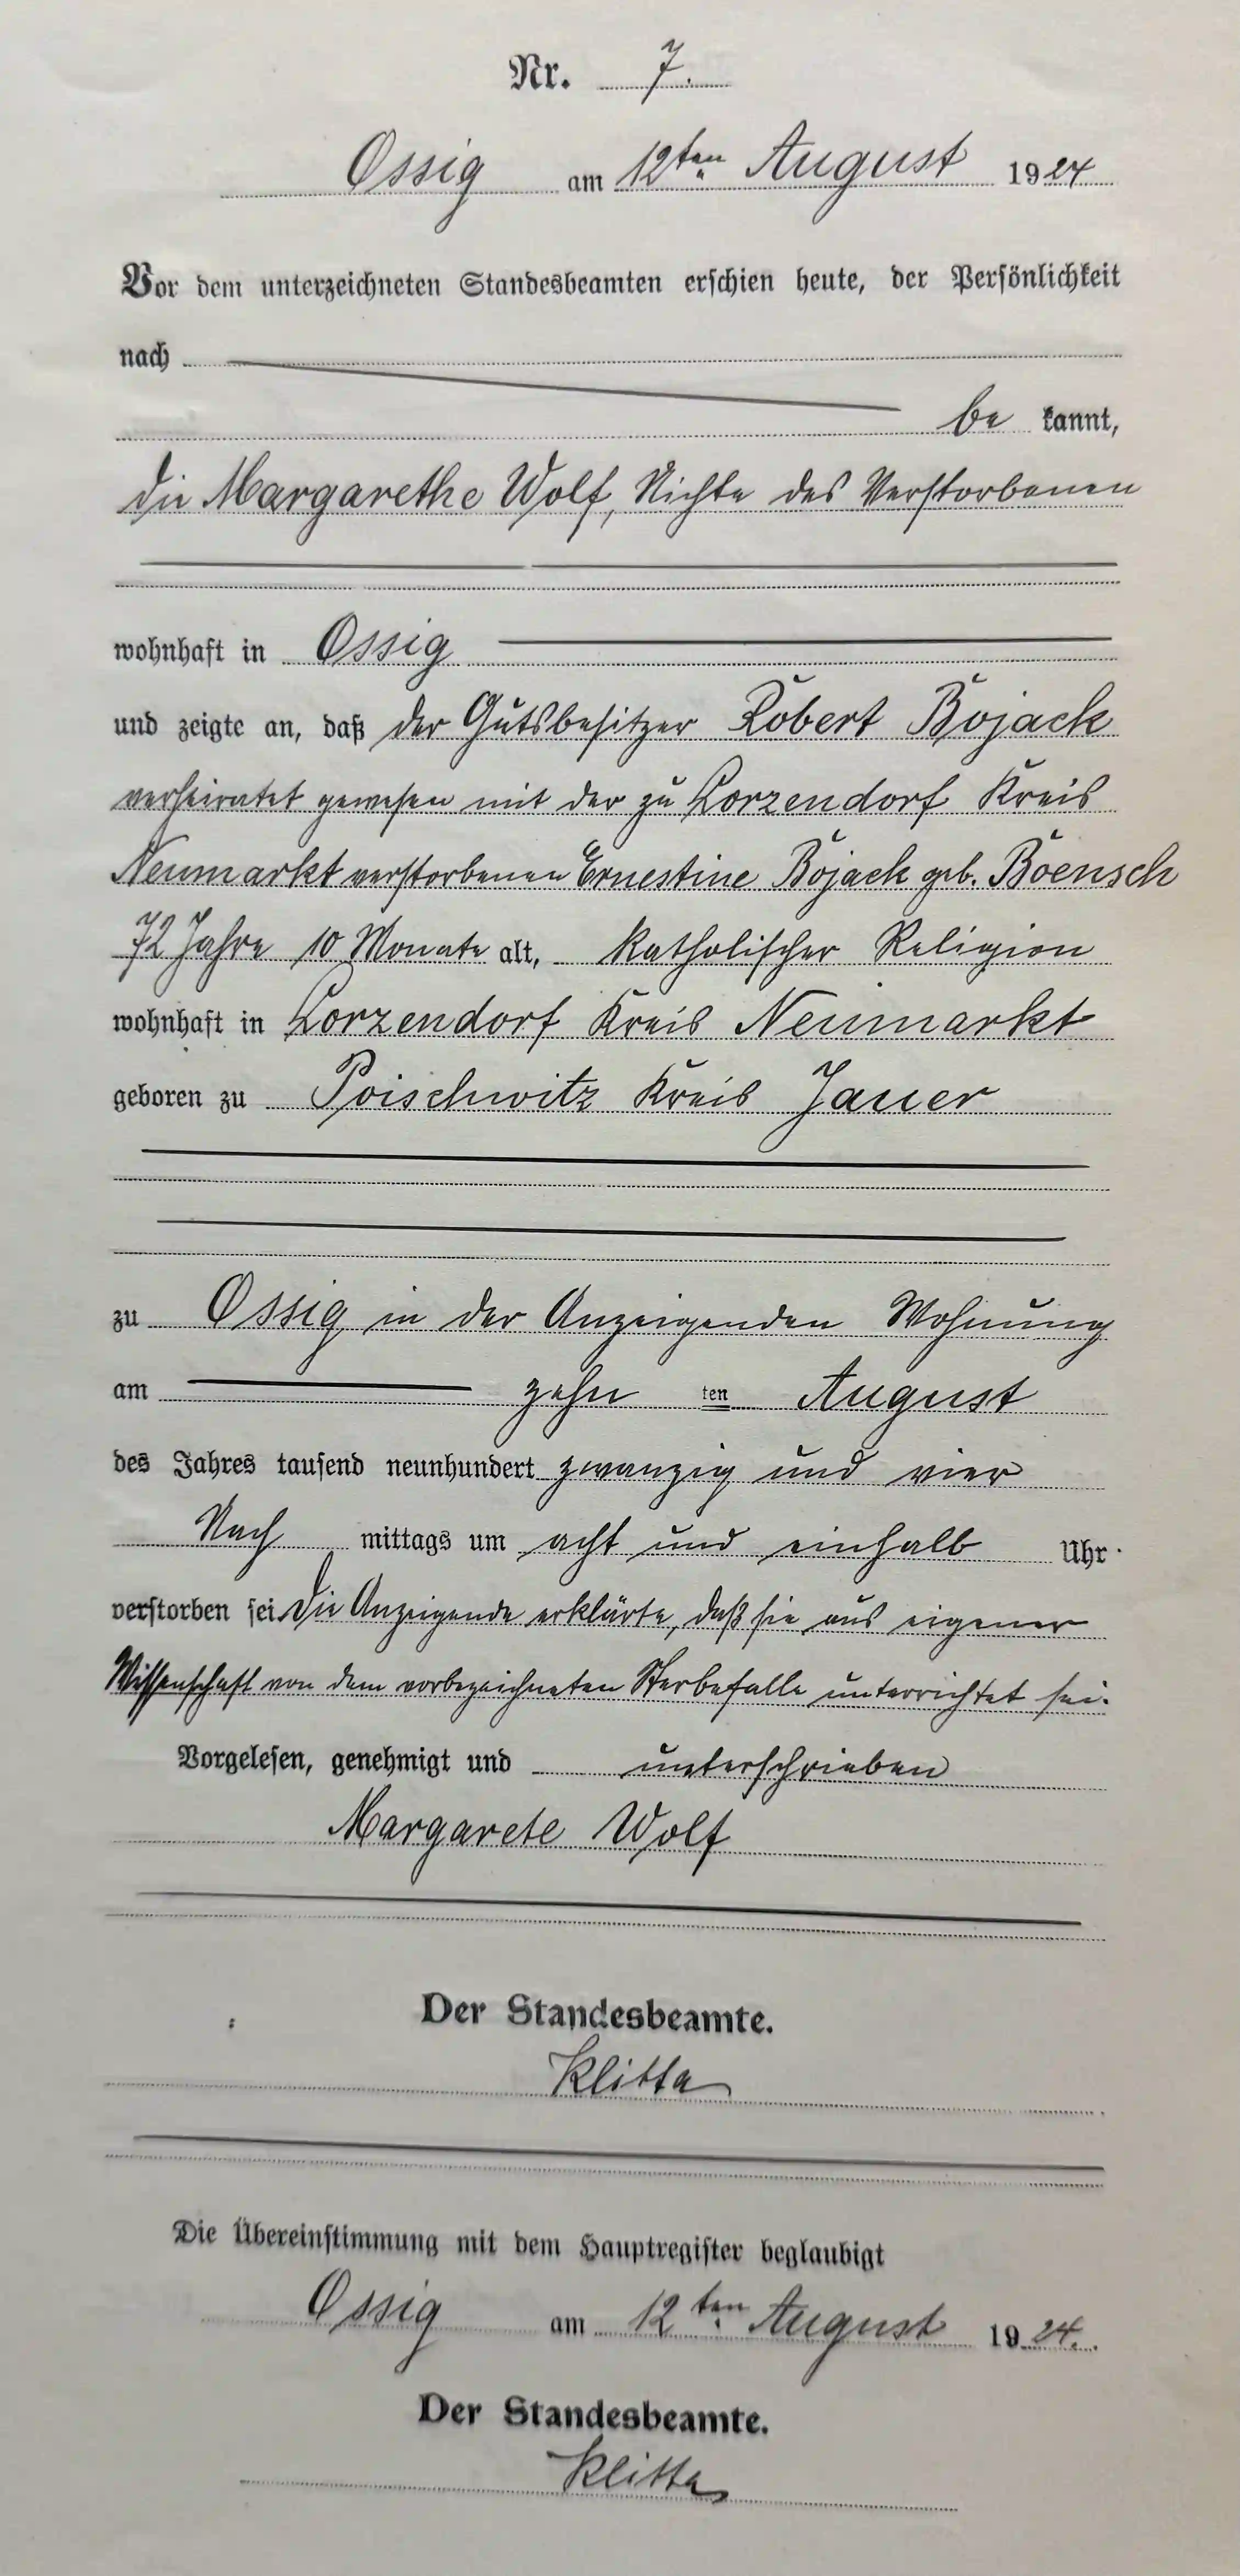 Nr. 7.
Ossig am 12ten August 1924
Vor dem unterzeichneten Standesbeamten erschien heute, der Persönlichkeit
nach
be kannt,
die Margarethe Wolf, Nichte des Verstorbenen
wohnhaft in Ossig
und zeigte an, daß der Gutsbesitzer Robert Bojack
verheiratet gewesen mit der zu Lorzendorf Kreis
Neumarkt verstorbenen Ernestine Bojack geb. Boensch
72 Jahre 10 Monate alt, katholischer Religion
wohnhaft in Lorzendorf Kreis Neumarkt
geboren zu Poischwitz Kreis Jauer
zu Ossig in der Anzeigenden Wohnung
am zehn ten August
des Jahres tausend neunhundert zwanzig und vier
Nach mittags um acht und einhalb Uhr
verstorben sei. Die Anzeigende erklärte, daß sie aus eigener
Wissenschaft von dem vorbezeichneten Sterbefalle unterrichtet sei.
Vorgelesen, genehmigt und unterschrieben
Margarete Wolf
Der Standesbeamte.
Klitta
Die Übereinstimmung mit dem Hauptregister beglaubigt
Ossig am 12ten August 1924.
Der Standesbeamte.
Klitta